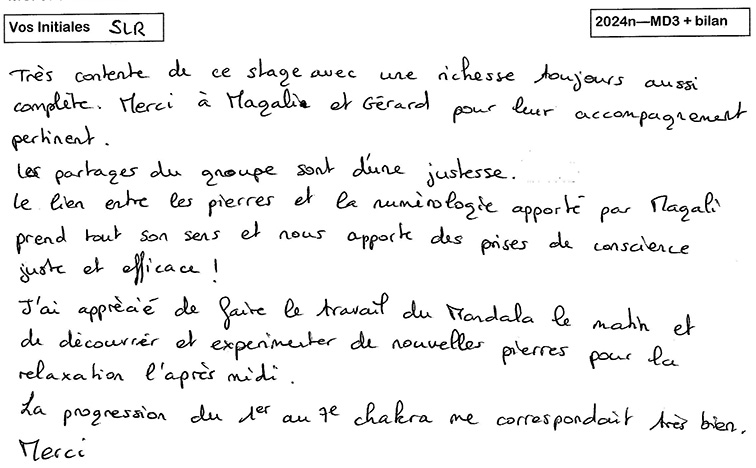 Vos Initiales SLR
2024n—MD3 + bilan
Très contente de ce stage avec une richesse toujours aussi
complète. Merci à Magalie et Gérard pour leur accompagnement
pertinent.
Les partages du groupe sont d'une justesse.
Le lien entre les pierres et la numérologie apporté par Magali
prend tout son sens et nous apporte des prises de conscience
juste et efficace !
J'ai apprécié de faire le travail du Mandala le matin et
de découvrir et experimenter de nouvelles pierres pour la
relaxation l'après midi.
La progression du 1er au 7e chakra me correspondait très bien.
Merci